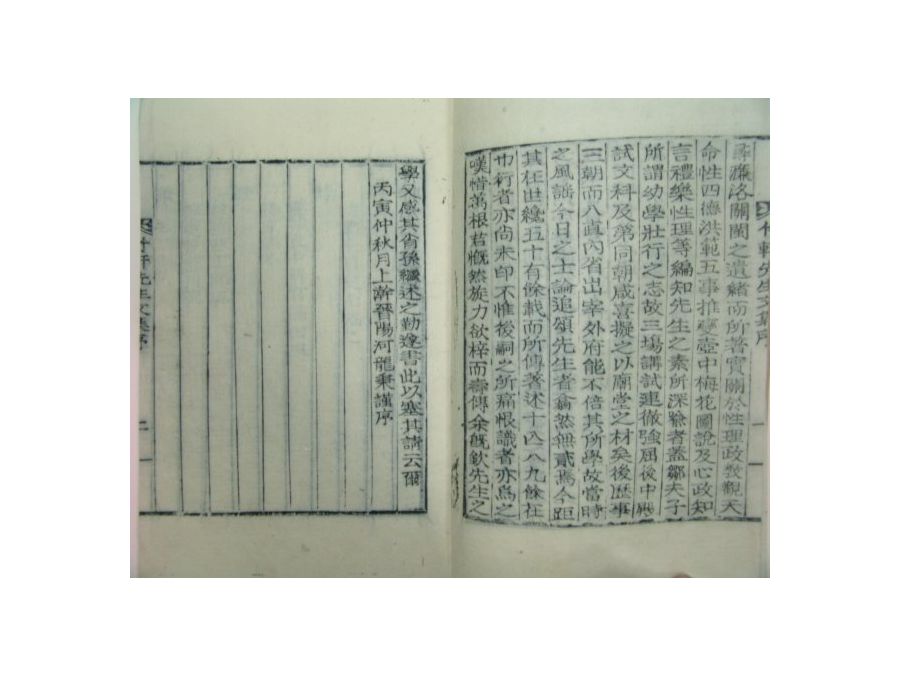 竹軒先生文集序
濂洛關閩之遺緖而所著實關於性理政敎觀天
命性四德洪範五事推變壺中梅花圖說及心政知
言禮樂性理等編知先生之素所深發者蓋鄒夫子
所謂幼學壯行之志故三場講試連徹強屈後中殿
試文科及第同朝咸喜擬之以廟堂之材矣後歷事
三朝而入直內省出宰外府能不倍其所學故當時
之風謠今日之士論追頌先生者翕然無貳焉今距
其在世纔五十有餘載而所傳著述十亾八九餘在
巾行者亦尙未印不惟後嗣之所痛恨識者亦爲之
嘆惜萬根君慨然旋力欲梓而壽傳余旣欽先生之
學又感其肖孫繼述之勤遂書此以塞其請云爾
丙寅仲秋月上澣晉陽河龍秉謹序
竹軒先生文集序
二